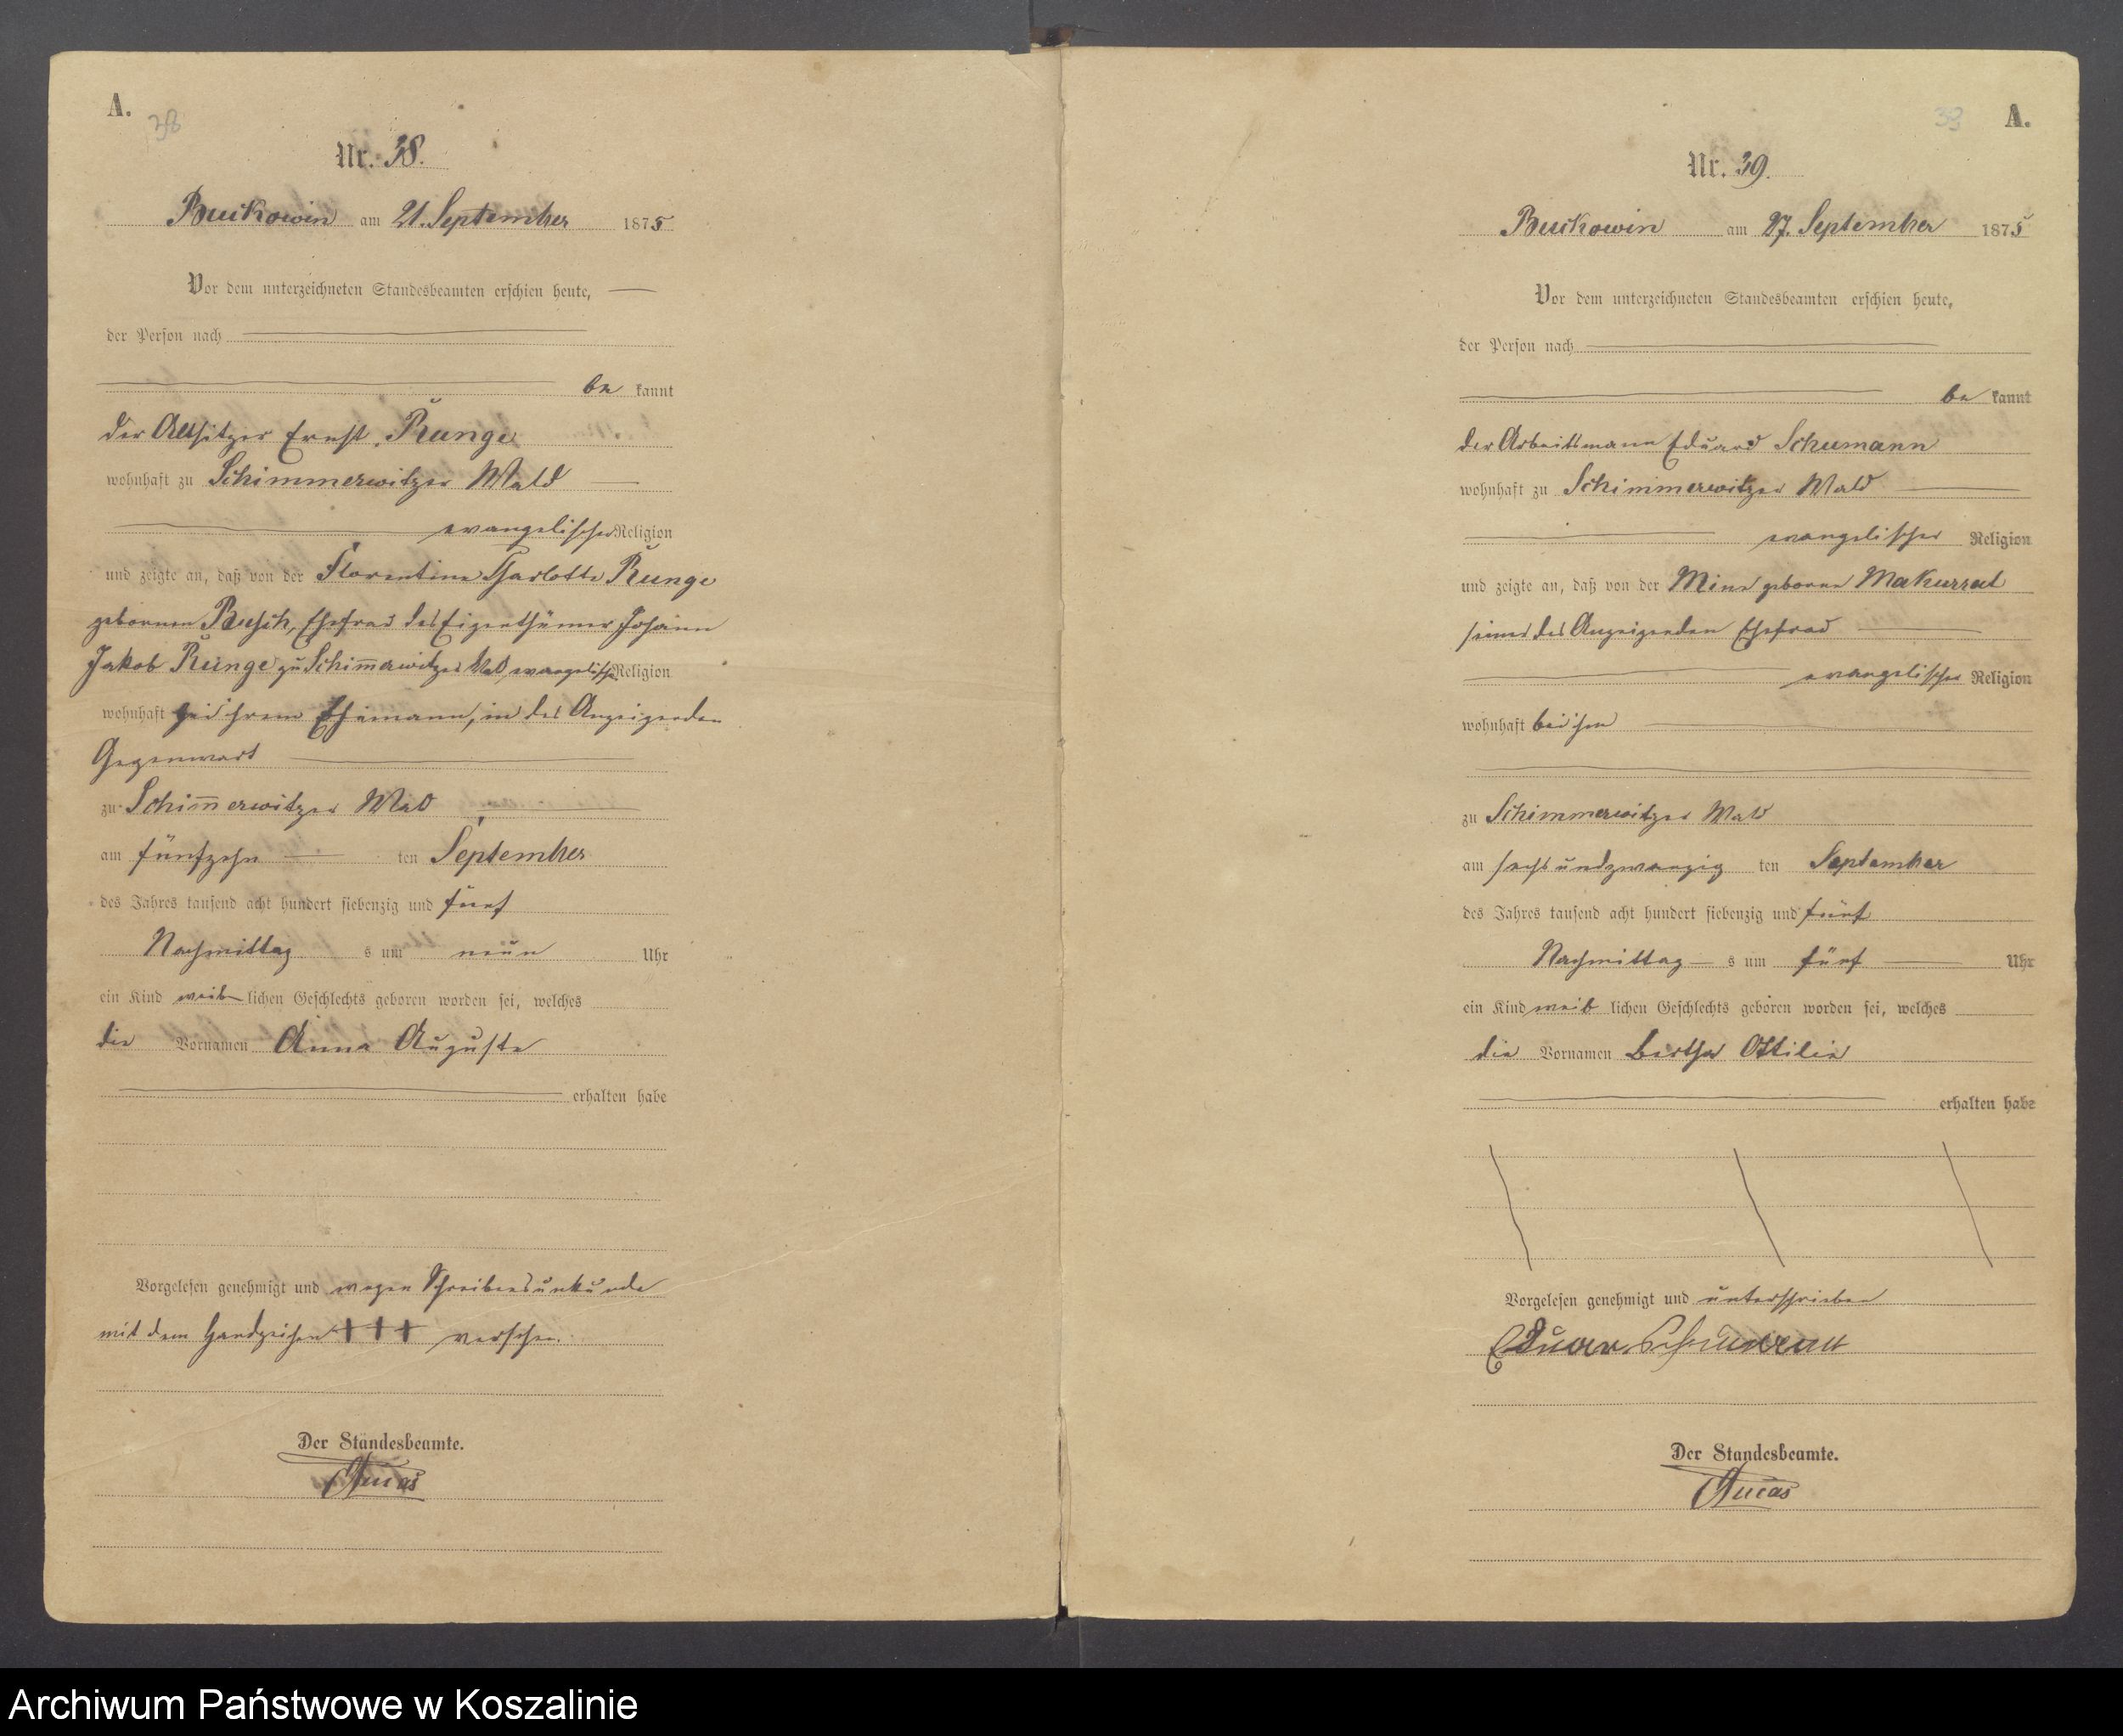 A.
38
Nr. 38.
Buckowin am 21. September 1875
Vor dem unterzeichneten Standesbeamten erschien heute,
der Person nach
be kannt
der Altsitzer Ernst Runge
wohnhaft zu Schimmerwitzer Wald
evangelischer Religion
und zeigte an, daß von der Florentine Charlotte Runge
gebornen Busch, Ehefrau des Eigenthümer Johann
Jakob Runge zu Schim̅erwitzer Wald, evangelischer Religion
wohnhaft bei ihrem Ehemann, in des Anzeigenden
Gegenwart
zu Schim̅erwitzer Wald
am fünfzehn ten September
des Jahres tausend acht hundert siebenzig und fünf
Nachmittag s um neun Uhr
ein Kind weib lichen Geschlechts geboren worden sei, welches
die Vornamen Anna Auguste
erhalten habe
Vorgelesen genehmigt und wegen Schreibensunkunde
mit dem Handzeichen +++ versehen.
Der Standesbeamte.
Lucas
39
A.
Nr. 39.
Buckowin am 27. September 1875
Vor dem unterzeichneten Standesbeamten erschien heute,
der Person nach
be kannt
der Arbeitsmann Eduard Schumann
wohnhaft zu Schimmerwitzer Wald
evangelischer Religion
und zeigte an, daß von der Mine geborne Makurrat
seiner des Anzeigenden Ehefrau
evangelischer Religion
wohnhaft bei ihm
zu Schimmerwitzer Wald
am sechsundzwanzig ten September
des Jahres tausend acht hundert siebenzig und fünf
Nachmittag s um fünf Uhr
ein Kind weib lichen Geschlechts geboren worden sei, welches
die Vornamen Bertha Ottilie
erhalten habe
Vorgelesen genehmigt und unterschrieben
Eduar Schumann
Der Standesbeamte.
Lucas
Archiwum Państwowe w Koszalinie